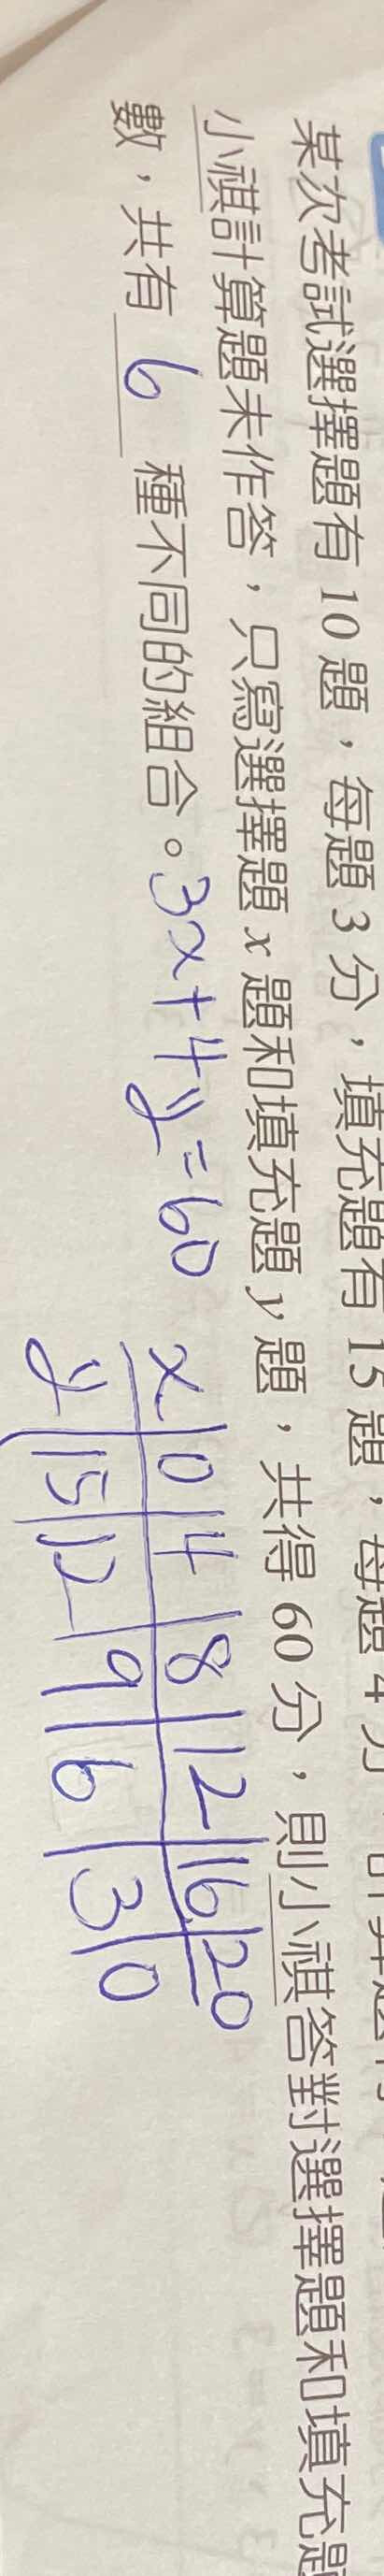 某次考試選擇題有 10 題，每題 3 分，填充題有 15 題，每題 4 分
小祺計算題未作答，只寫選擇題 x 題和填充題 y 題，共得 60 分，則小祺答對選擇題和填充題
數，共有 6 種不同的組合。3x+4y=60
x 0 4 8 12 16 20
y 15 12 9 6 3 0